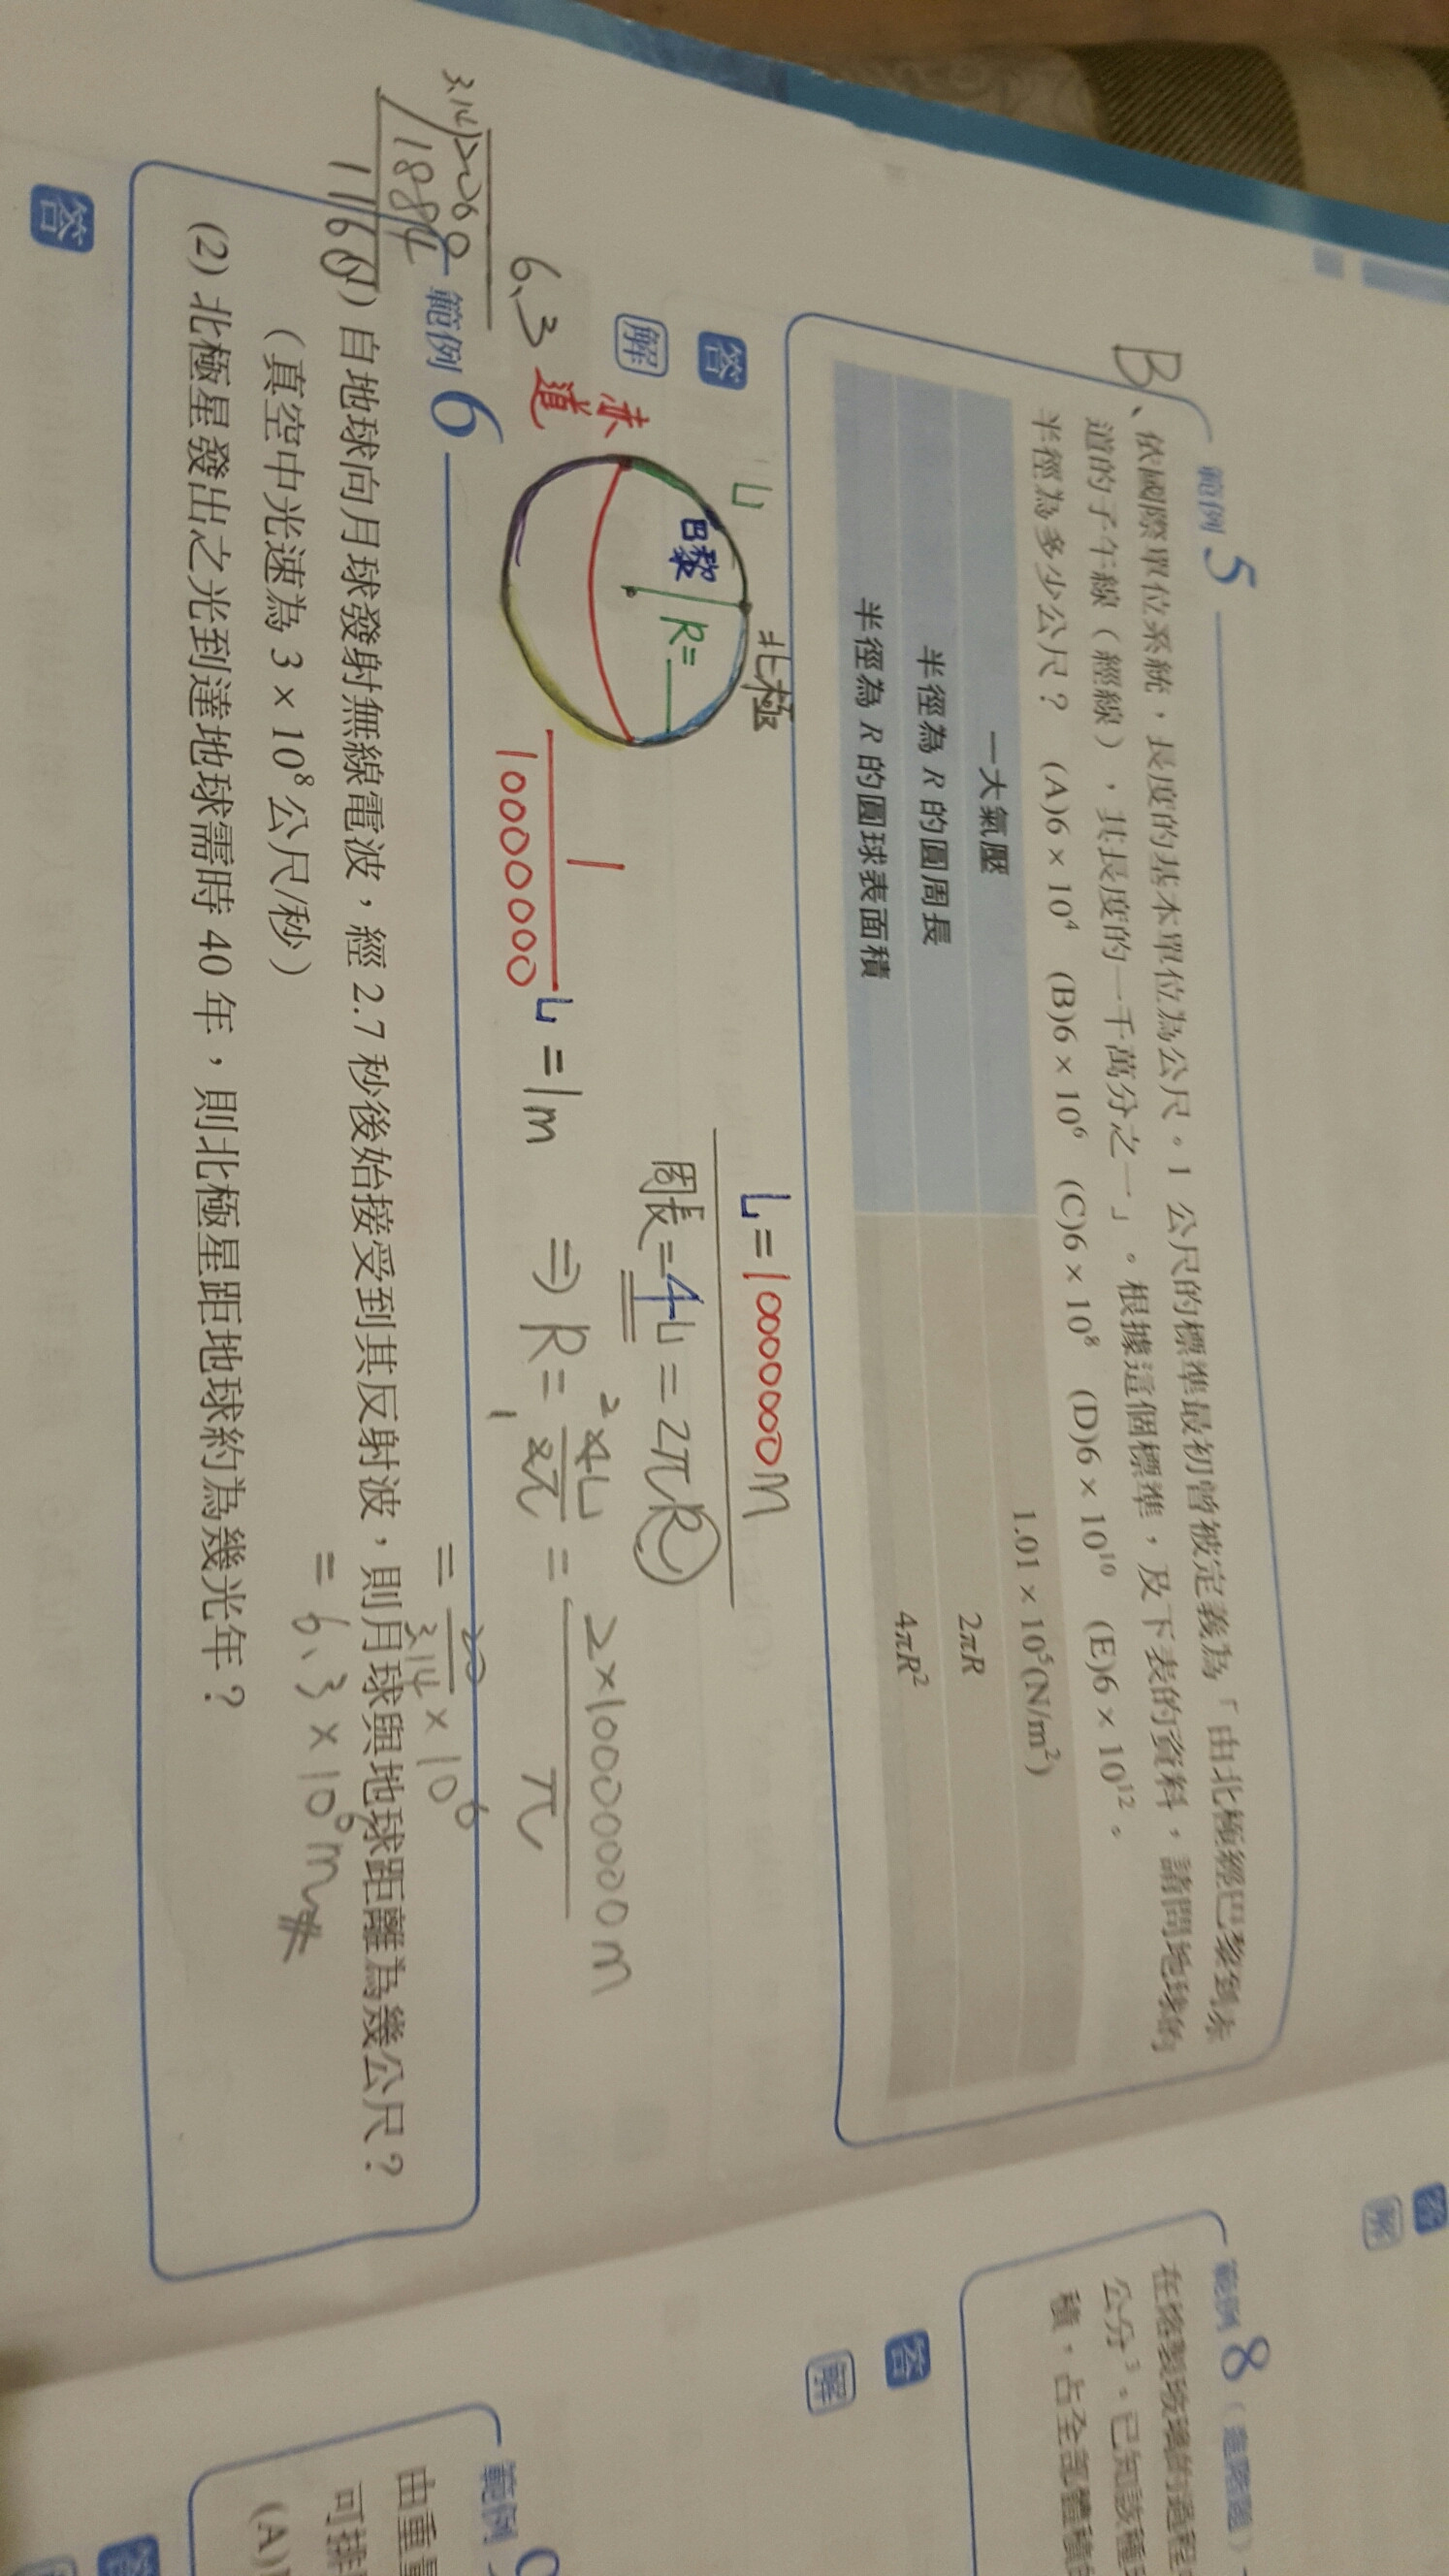 範例 5
B、依國際單位系統，長度的基本單位為公尺。1 公尺的標準最初曾被定義為「由北極經巴黎到赤
道的子午線（經線），其長度的一千萬分之一」。根據這個標準，及下表的資料，請問地球的
半徑為多少公尺？ (A)6 × 10⁴ (B)6 × 10⁶ (C)6 × 10⁸ (D)6 × 10¹⁰ (E)6 × 10¹²。
一大氣壓 1.01 × 10⁵(N/m²)
半徑為 R 的圓周長 2πR
半徑為 R 的圓球表面積 4πR²
答
解
L
北極
巴黎
R=
赤道
L=10000000m
周長=4L=2πR
1/10000000 L=1m ⇒ R=4L/2π = 2×10000000m/π
2
1
= 20/3.14 × 10⁶
= 6.3 × 10⁶m#
6.3
3.14 2000
1884
1160
範例 6
(1) 自地球向月球發射無線電波，經 2.7 秒後始接受到其反射波，則月球與地球距離為幾公尺？
（真空中光速為 3 × 10⁸ 公尺/秒）
(2) 北極星發出之光到達地球需時 40 年，則北極星距地球約為幾光年？
答
答
解
範例 8（進階題）
在熔製玻璃的過程
公分³。已知該種玻
積，占全部體積的
答
解
範例 9
由重量
可排
(A)
答